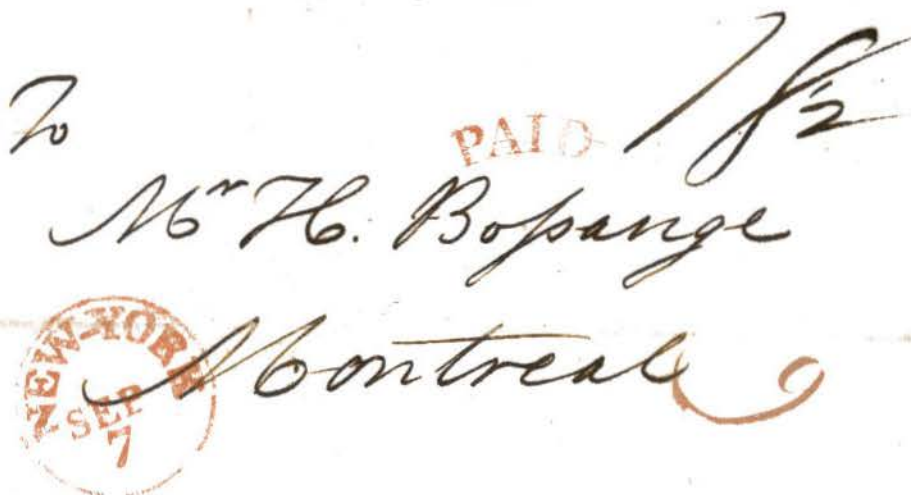 To
PAID
1 8½
Mr H. Bossange
Montreal
NEW-YORK
SEP
7